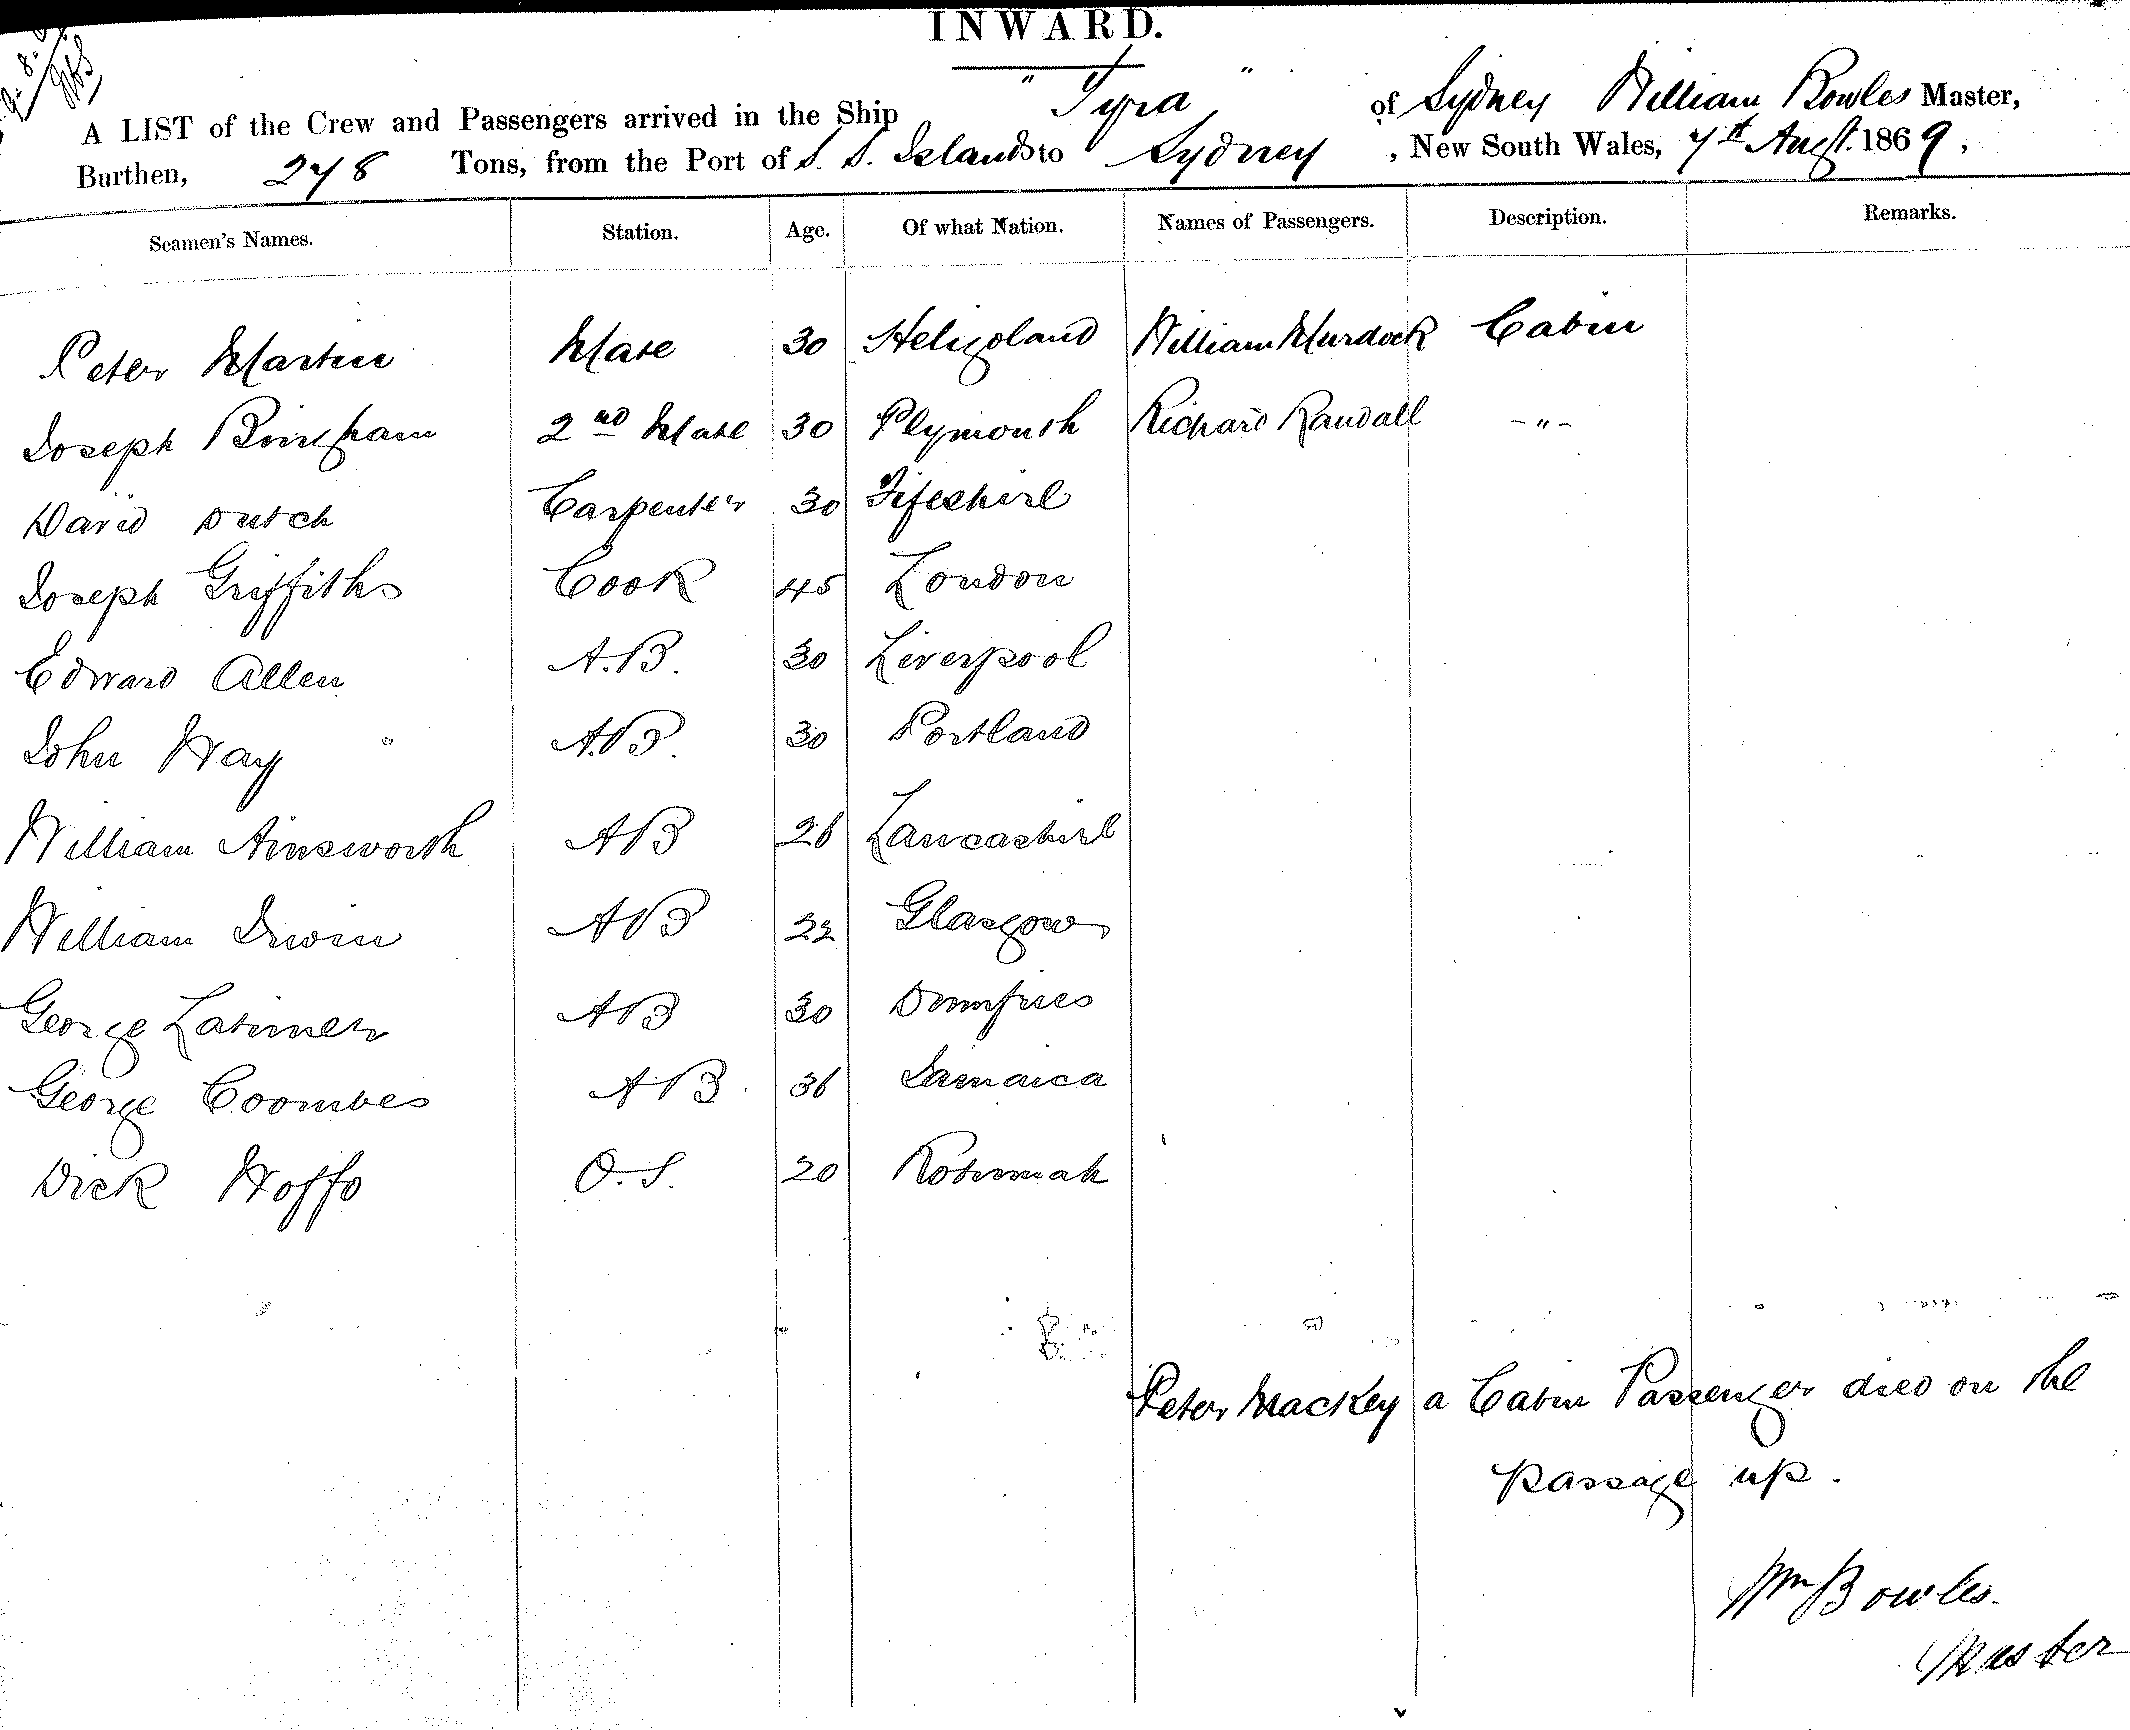 INWARD.
A LIST of the Crew and Passengers arrived in the Ship " Tyra " of Sydney William Bowles Master,
Burthen, 278 Tons, from the Port of S. S. Islands to Sydney, New South Wales, 7th Augst. 1869,
Seamen's Names. Station. Age. Of what Nation. Names of Passengers. Description. Remarks.
Peter Martin Mate 30 Heligoland William Murdock Cabin
Joseph Bingham 2nd Mate 30 Plymouth Richard Randall -"-
David Dutch Carpenter 30 Fifeshire
Joseph Griffiths Cook 45 London
Edward Allen A.B. 30 Liverpool
John Way A.B. 30 Portland
William Ainsworth AB 26 Lancashire
William Irwin AB 22 Glasgow
George Latimer AB 30 Dumfries
George Coombes AB 36 Jamaica
Dick Hoffo O.S. 20 Rotumah
Peter Mackey a Cabin Passenger died on the
passage up.
Wm Bowles.
Master